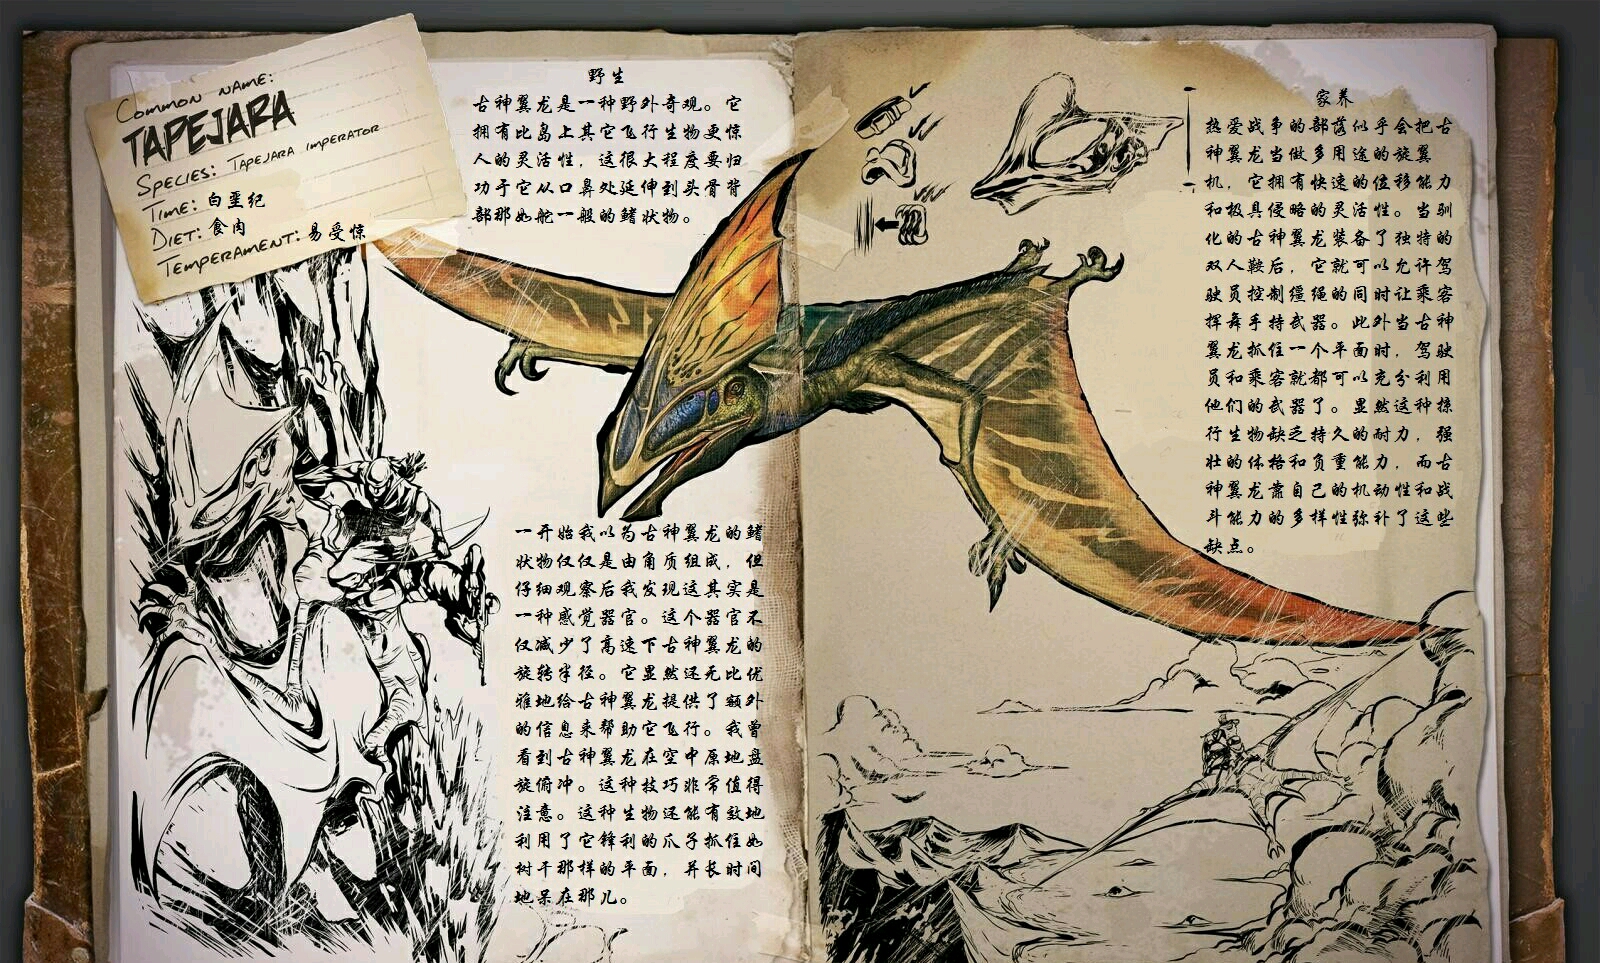 COMMON NAME:
TAPEJARA
SPECIES: TAPEJARA IMPERATOR
TIME: 白垩纪
DIET: 食肉
TEMPERAMENT: 易受惊
野生
古神翼龙是一种野外奇观。它
拥有比岛上其它飞行生物更惊
人的灵活性，这很大程度要归
功于它从口鼻处延伸到头骨背
部那如舵一般的鳍状物。
一开始我以为古神翼龙的鳍
状物仅仅是由角质组成，但
仔细观察后我发现这其实是
一种感觉器官。这个器官不
仅减少了高速下古神翼龙的
旋转半径。它显然还无比优
雅地给古神翼龙提供了额外
的信息来帮助它飞行。我曾
看到古神翼龙在空中原地盘
旋俯冲。这种技巧非常值得
注意。这种生物还能有效地
利用了它锋利的爪子抓住如
树干那样的平面，并长时间
地呆在那儿。
家养
热爱战争的部落似乎会把古
神翼龙当做多用途的旋翼
机，它拥有快速的位移能力
和极具侵略的灵活性。当驯
化的古神翼龙装备了独特的
双人鞍后，它就可以允许驾
驶员控制缰绳的同时让乘客
挥舞手持武器。此外当古神
翼龙抓住一个平面时，驾驶
员和乘客就都可以充分利用
他们的武器了。显然这种掠
行生物缺乏持久的耐力，强
壮的体格和负重能力，而古
神翼龙靠自己的机动性和战
斗能力的多样性弥补了这些
缺点。